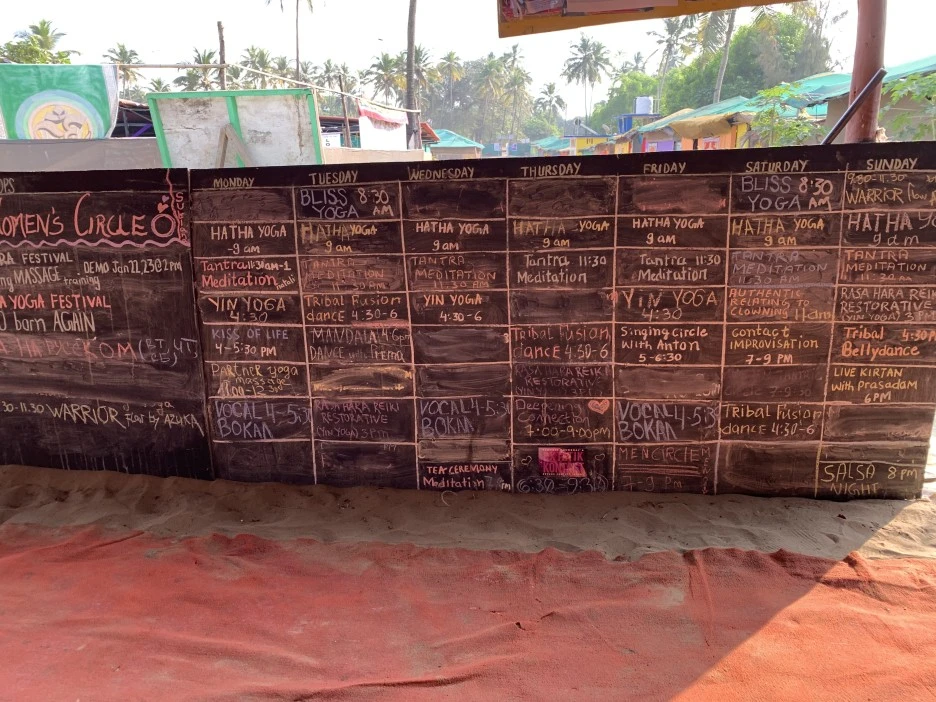 OPS
WOMEN'S CIRCLE
FESTIVAL
MASSAGE training DEMO Jan 22,23@2pm
YOGA FESTIVAL
born AGAIN
KOM
30-11.30 WARRIOR flow by AZUKA
MONDAY
HATHA YOGA
-9 am
Tantra 11:30am-1
Meditation
YIN YOGA
4:30
KISS OF LIFE
4-5:30 PM
PARTNER yoga
massage
VOCAL 4-5:3
BOKAA
TUESDAY
BLISS 8:30
YOGA AM
HATHA YOGA
9 am
TANTRA
MEDITATION
11:30 AM
Tribal Fusion
dance 4:30-6
MANDALA 4-6pm
DANCE with Prema
RASA HARA REIKI
RESTORATIVE
(YIN YOGA) 3 PM
WEDNESDAY
HATHA YOGA
-9 am
TANTRA
MEDITATION
11:30 AM
YIN YOGA
4:30-6
VOCAL 4-5:3
BOKAA
TEA CEREMONY
Meditation
THURSDAY
HATHA YOGA
9 am
Tantra 11:30
Meditation
Tribal Fusion
dance 4:30-6
RASA HARA REIKI
RESTORATIVE
7:00-9:00pm
6:30-9:30
FRIDAY
HATHA YOGA
-9 am
Tantra 11:30
Meditation
YIN YOGA
4:30
Singing circle
with Anton
5-6:30
VOCAL 4-5:3
BOKAA
MEN CIRCLE
7-9 PM
SATURDAY
BLISS 8:30
YOGA AM
HATHA YOGA
9 am
TANTRA
MEDITATION
11:30 AM
AUTHENTIC
RELATING TO
CLOWNING 11am
contact
IMPROVISATION
7-9 PM
Tribal Fusion
dance 4:30-6
SUNDAY
WARRIOR flow
HATHA YO
9am
TANTRA
MEDITATION
11:30 AM
RASA HARA REIKI
RESTORATIVE
(YIN YOGA) 3 PM
Tribal 4:30PM
Bellydance
LIVE KIRTAN
with prasadam
6PM
SALSA 8 pm
NIGHT